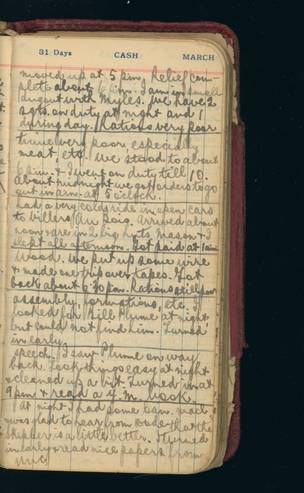 31 Days CASH MARCH
moved up at 5 pm, Relief com-
plete about 6 pm. I am in small
dugout with Myles. We have 2
sgts. on duty at night and 1
during day. Rations very poor
time very poor, especially
meat, etc. We stood to about
6 pm. & I went on duty till 10.
About midnight we got orders to go
out in a.m. at 5 o'clock.
Had a very cold ride in open cars
to billets, Au Soie. Arrived about
noon, are in 2 big huts. Mason &
slept all afternoon. Got paid at 10am
Wood. We put up some wire
& made one trip over tapes. Got
back about 6:30 pm. Rations still poor
assembly, formations, etc. I
looked for Bill Plume at night
but could not find him. Turned
in early.
speech. I saw Plume on way
back. Took things easy at night
& cleaned up a bit. Turned in at
9 pm & read a book.
At night I had some mail
was glad to hear from that the
skipper is a little better. I turned
in early & read nice papers from